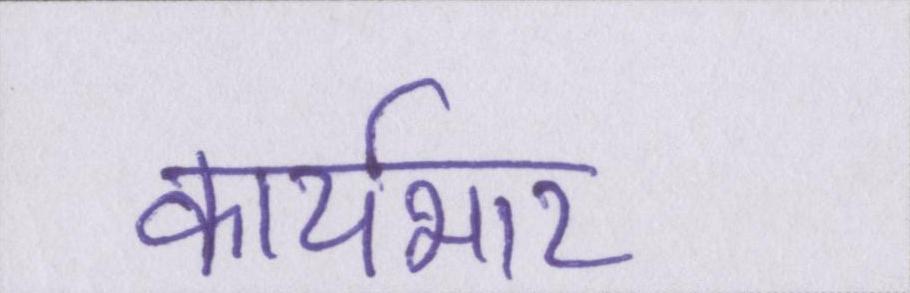 कार्यभार